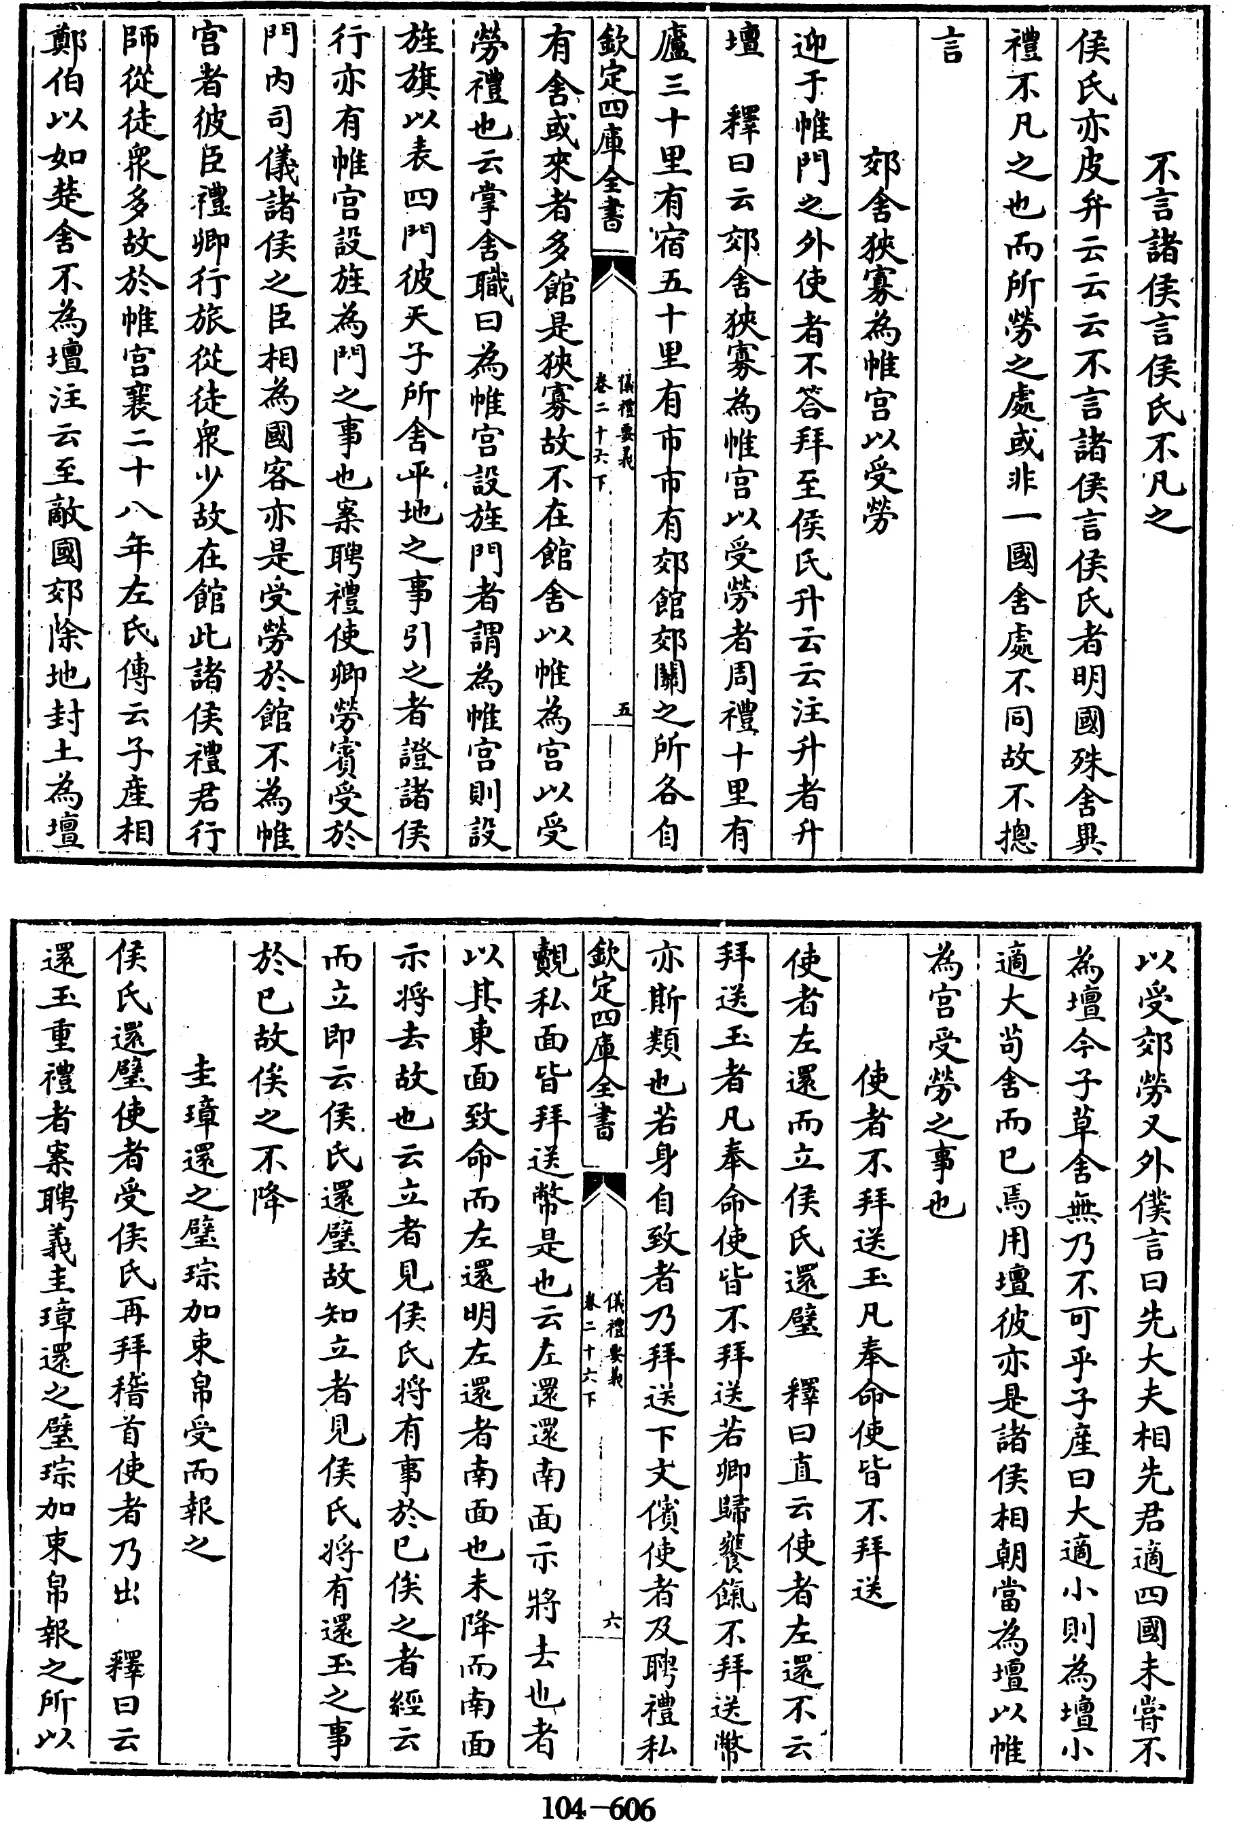 不言諸侯言侯氏不凡之
侯氏亦皮弁云云云不言諸侯言侯氏者明國殊舍異
禮不凡之也而所勞之處或非一國舍處不同故不摠
言
郊舍狹寡為帷宫以受勞
迎于帷門之外使者不答拜至侯氏升云云注升者升
壇　釋曰云郊舍狹寡為帷宫以受勞者周禮十里有
廬三十里有宿五十里有市市有郊館郊關之所各自
欽定四庫全書
儀禮要義
卷二十六下
五
有舍或來者多館是狹寡故不在館舍以帷為宫以受
勞禮也云掌舍職曰為帷宫設旌門者謂為帷宫則設
旌旗以表四門彼天子所舍平地之事引之者證諸侯
行亦有帷宫設旌為門之事也案聘禮使卿勞賓受於
門内司儀諸侯之臣相為國客亦是受勞於館不為帷
宫者彼臣禮卿行旅從徒衆少故在館此諸侯禮君行
師從徒衆多故於帷宫襄二十八年左氏傳云子産相
鄭伯以如楚舍不為壇注云至敵國郊除地封土為壇
以受郊勞又外僕言曰先大夫相先君適四國未嘗不
為壇今子草舍無乃不可乎子産曰大適小則為壇小
適大苟舍而已焉用壇彼亦是諸侯相朝當為壇以帷
為宫受勞之事也
使者不拜送玉凡奉命使皆不拜送
使者左還而立侯氏還璧　釋曰直云使者左還不云
拜送玉者凡奉命使皆不拜送若卿歸饔餼不拜送幣
亦斯類也若身自致者乃拜送下文儐使者及聘禮私
欽定四庫全書
儀禮要義
卷二十六下
六
覿私面皆拜送幣是也云左還還南面示將去也者
以其東面致命而左還明左還者南面也未降而南面
示將去故也云立者見侯氏將有事於已俟之者經云
而立即云侯氏還璧故知立者見侯氏將有還玉之事
於已故俟之不降
圭璋還之璧琮加束帛受而報之
侯氏還璧使者受侯氏再拜稽首使者乃出　釋曰云
還玉重禮者案聘義圭璋還之璧琮加束帛報之所以
104-606